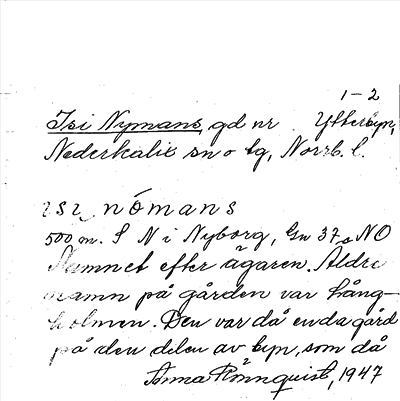 1-2
Isi Nymans, gd nr Ytterbyn,
Nederkalix sn o tg, Norrb. l.
ɪsɪ nómans
500 m. S N i Nyborg, Gu 37a NO
Namnet efter ägaren. Äldre
namn på gården var Lång-
holmen. Den var då enda gård
på den delen av byn, som då
Anna Rönnquist, 1947